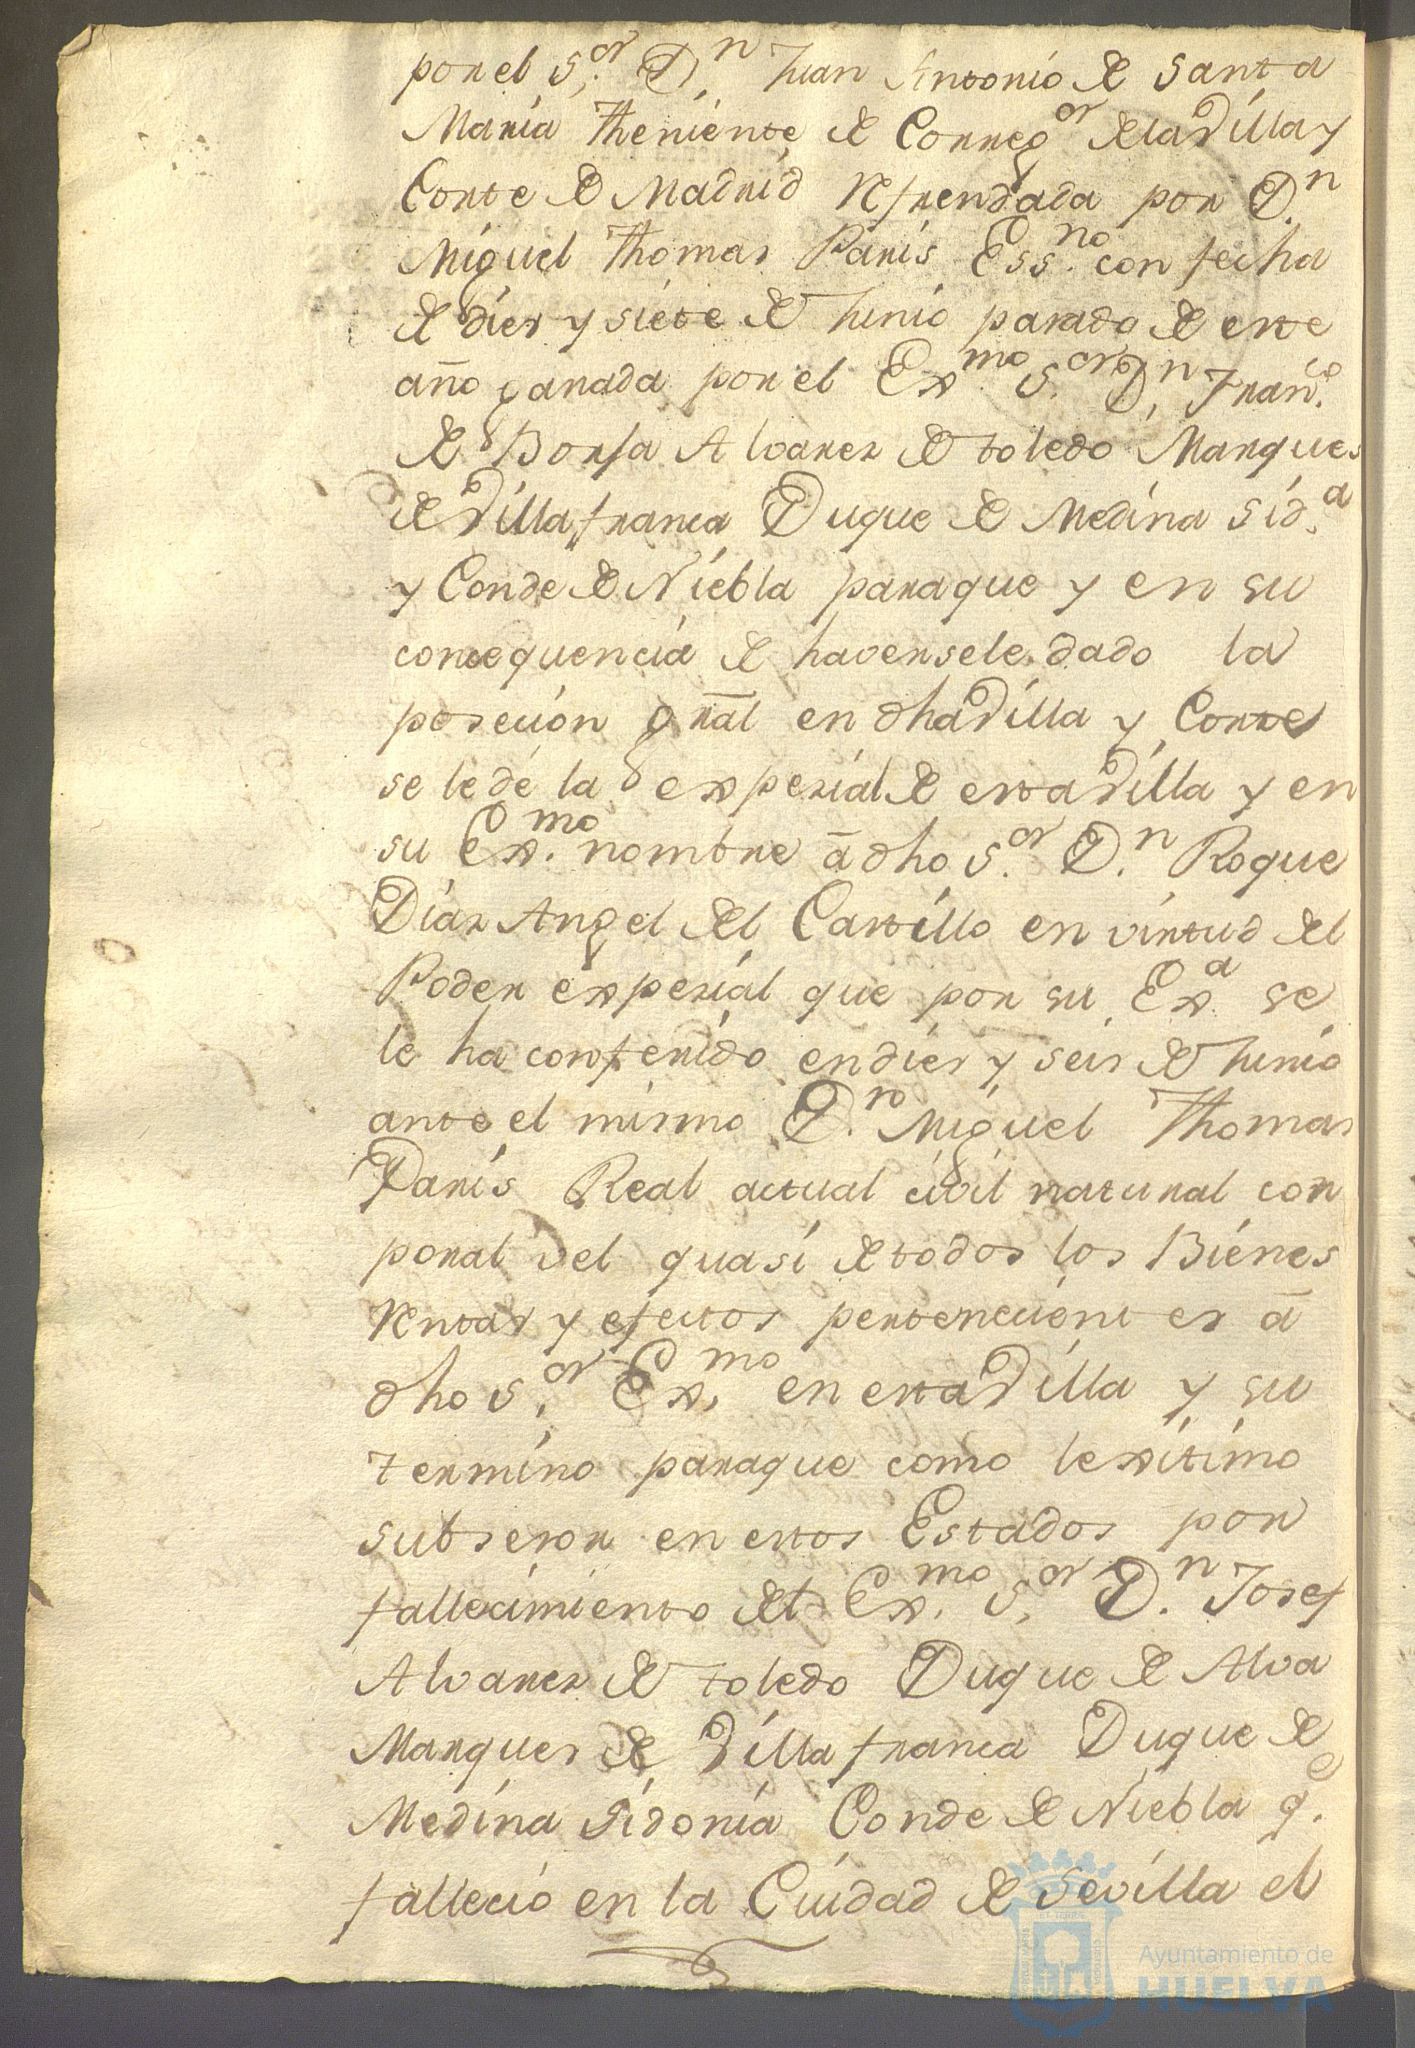 por el S.or D.n Juan Antonio de Santa
Maria Theniente de Correg.or dela Villa y
Corte de Madrid Refrendada por D.n
Miguel Thomas Paris Ess.no con fecha
de dies y siete de Junio pasado de este
año ganada por el Ex.mo S.or D.n Fran.co
de Borja Alvarez de toledo Marques
de Villafranca Duque de Medina Sid.a
y Conde de Niebla paraque y en su
consequencia de haversele dado la
posecion gral en dha Villa y Corte
se le dé la expecial de esta Villa y en
su Ex.mo nombre à dho S.or D.n Roque
Diaz Angel del Castillo en virtud del
Poder expecial que por su Ex.a se
le ha conferido en dies y seis de Junio
ante el mismo D.n Miguel Thomas
Paris Real actual civil natural cor
poral vel quasi de todos los Bienes
Rentas y efectos pertenecientes à
dho S.or Ex.mo en esta Villa y su
termino paraque como lexitimo
subsesor en estos Estados por
fallecimiento del Ex.mo S.or D.n Josef
Alvarez de toledo Duque de Alva
Marques de Villafranca Duque de
Medina Sidonia Conde de Niebla q.e
fallecio en la Ciudad de Sevilla el
Ayuntamiento de
HUELVA